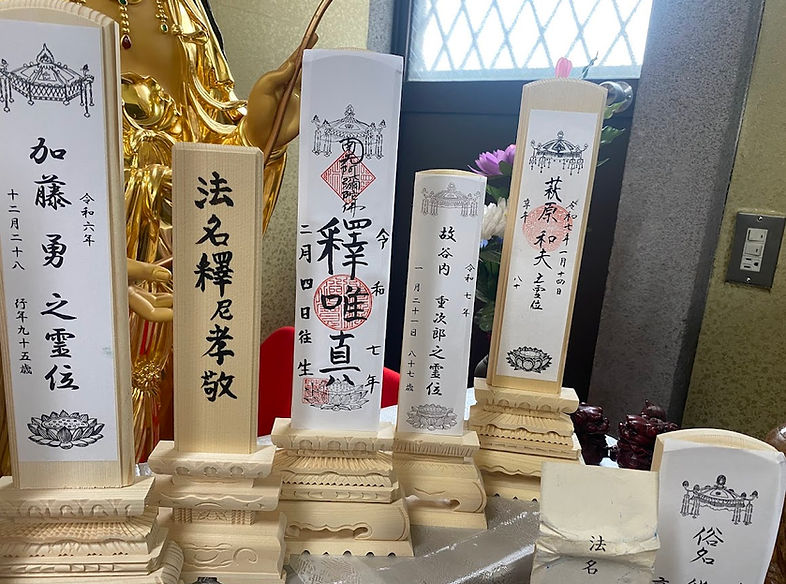 令和六年
加藤 勇 之霊位
十二月二十八 行年九十五歳
法名釋尼孝敬
南無阿彌陀佛
令和七年
釋唯真
二月四日往生
令和 七年
故谷内 重次郎之霊位
一月二十一日 八十七歳
令和七年一月十四日
萩原和夫之霊位
享年 八十
法名
俗名